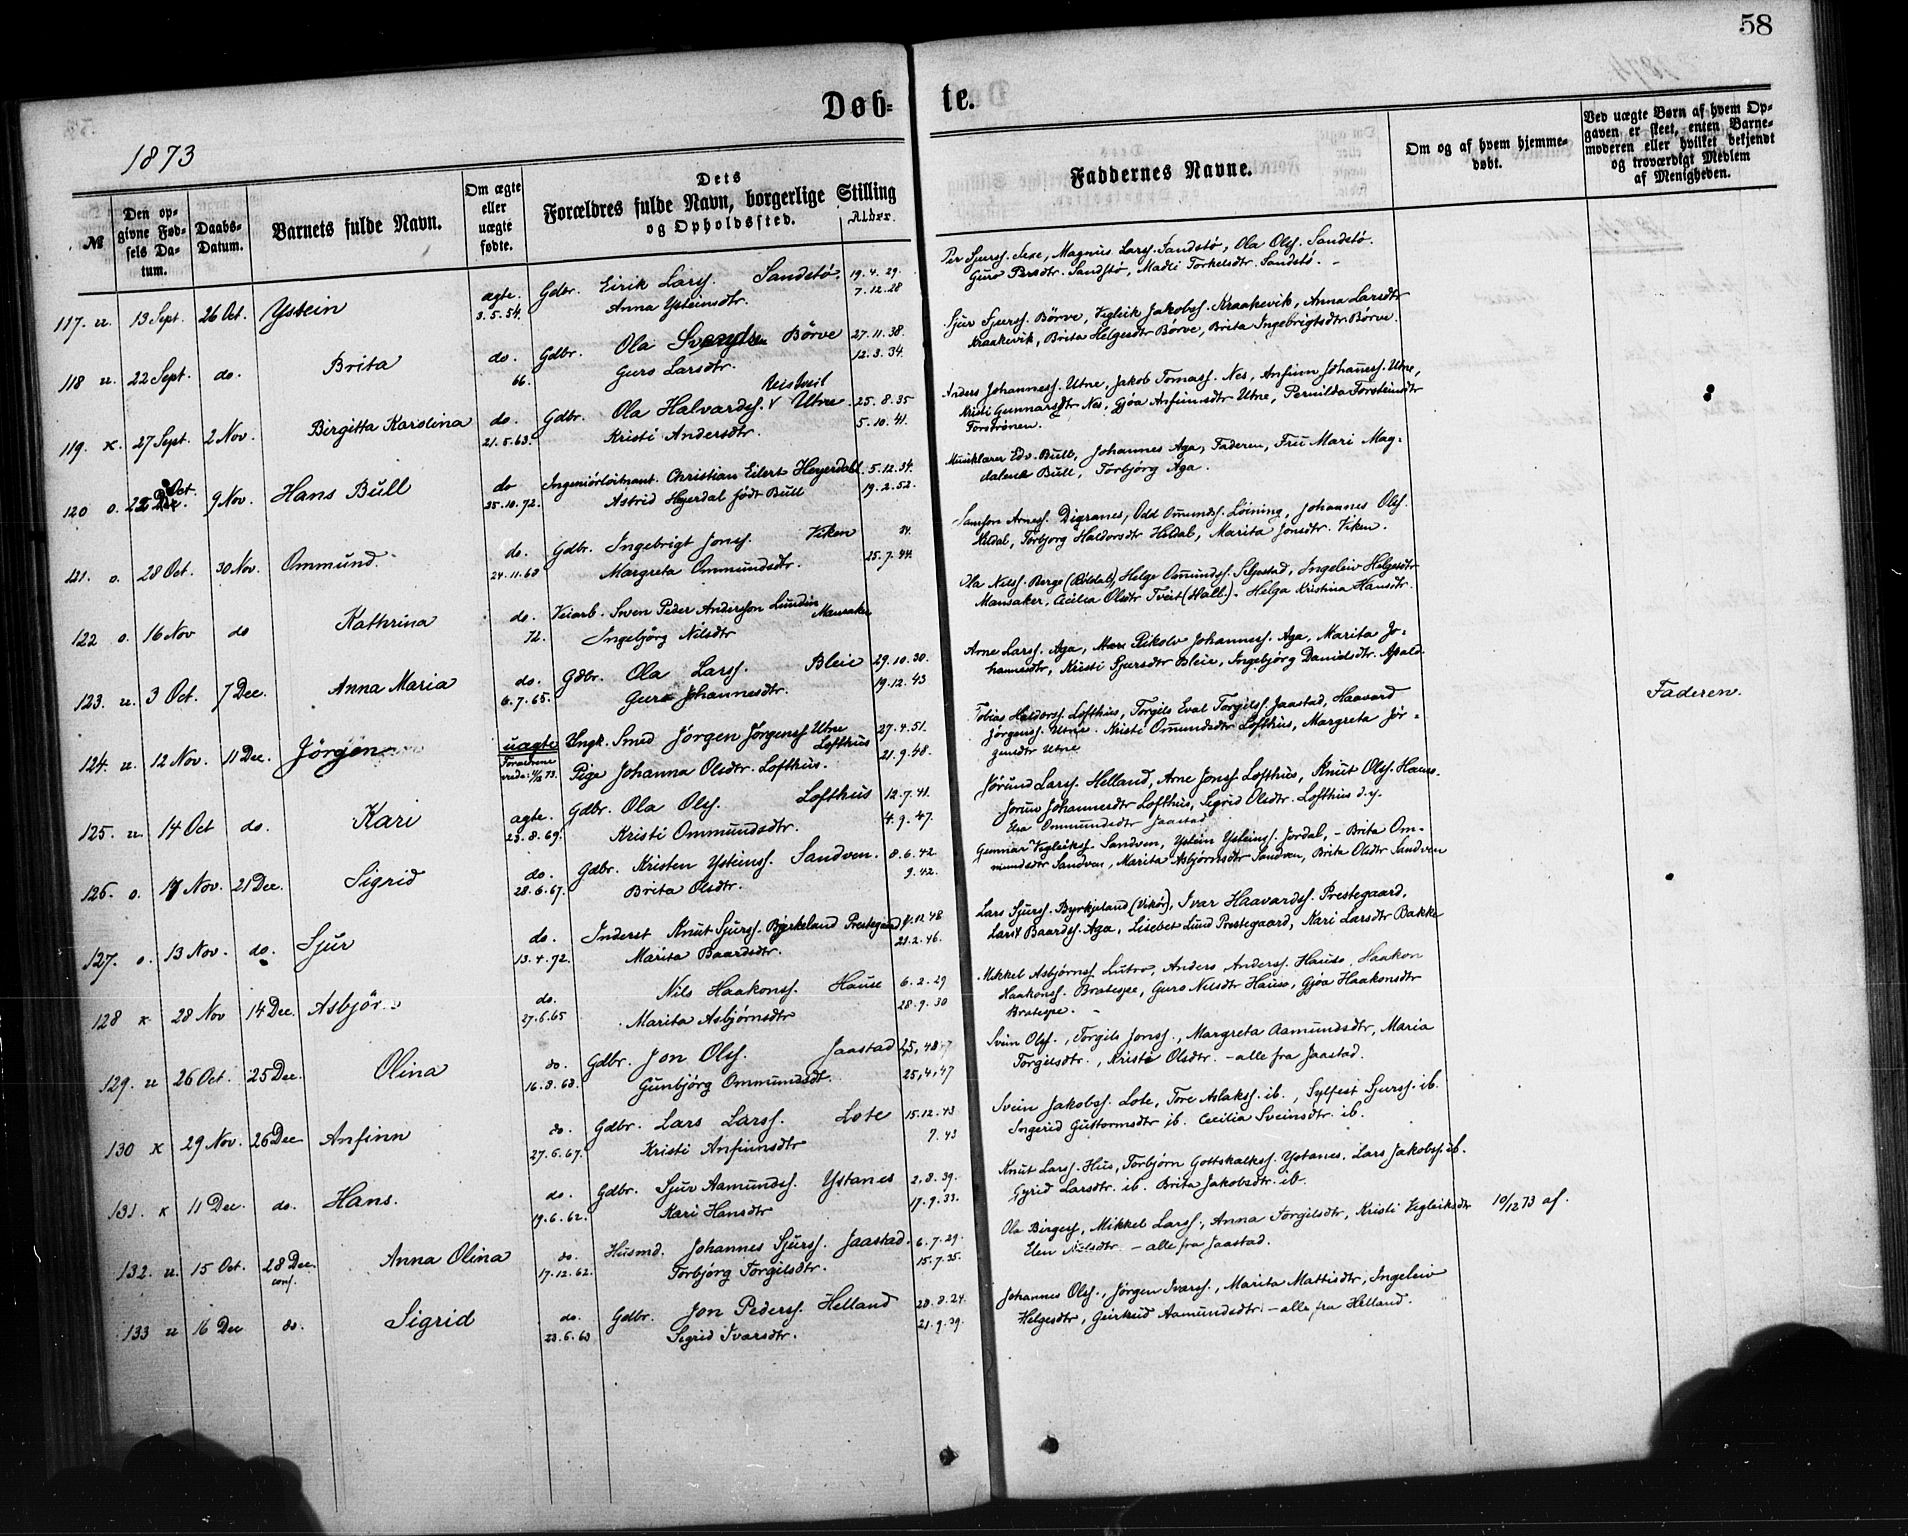 58
Døb-
te.
1873
№
Den op-
givne Fød-
sels Da-
tum.
Daabs-
Datum.
Barnets fulde Navn.
Om ægte
eller
uægte
fødte.
Dets
Forældres fulde Navn, borgerlige Stilling
og Opholdssted.
Alder.
Faddernes Navne.
Om og af hvem hjemme-
døbt.
Ved uægte Børn af hvem Op-
gaven er skeet, enten Barne-
moderen eller hvilket bekjendt
og troværdigt Medlem
af Menigheden.
117. u. 13 Sept. 26 Oct. Ystein ægte. Gdbr. Eirik Larss. Sandstø. 19.4.29.
3.5.54. Anna Ysteinsdtr. 7.12.28
Per Sjurss. Sexe, Magnus Larss. Sandstø, Ola Olss. Sandstø.
Guro Persdtr. Sandstø, Madli Torkelsdtr. Sandstø.
118 u. 22 Sept. do. Brita do. Gdbr. Ola Børve 27.11.38.
66. Guro Larsdtr. 12.3.34.
Sjur Sjurss. Børve, Vegleik Jakobss. Kraakevik, Anna Larsdtr
Kraakevik, Brita Helgesdtr Børve, Brita Ingebrigtsdtr. Børve.
119. x. 27 Sept. 2 Nov. Birgitta Karolina do. Gdbr. Ola Halvardss. Utne 25.8.35
21.5.63. Kristi Andersdtr. 5.10.41.
Anders Johanness. Utne, Jakob Tomass. Nes, Anfinn Johanness. Utne,
Kristi Gunnarsdtr Nes, Gjøa Anfinnsdtr Utne, Pernilda Torsteinsdtr
120 o. 25 Oct. 9 Nov. Hans Bull do Ingeniørløitnant. Christian Eilert Heyerdahl. 5.12.34.
25.10.72. Astrid Heyerdal født Bull 19.2.52.
Musiklærer Edv. Bull, Johannes Aga, Faderen, Fru Mari Mag-
dalena Bull, Torbjørg Aga.
121. o. 28 Oct. 30 Nov. Ommund. do. Gdbr. Ingebrigt Jonss. Viken 34.
24.11.68 Margreta Ommundsdtr. 25.7.44.
Samson Arness. Digranes, Odd Omundss. Løining, Johannes Olss.
Hildal, Torbjørg Haldorsdtr Hildal, Marita Jonsdtr. Viken.
122 o. 16 Nov do Kathrina do. Veiarb. Sven Peder Andersson Lundin Mansaker
72. Ingebjørg Nilsdtr
Ola Nilss. Berge (Røldal), Helge Omundss. Seljestad, Ingeleiv Helgesdtr
Mansaker, Cecilia Olsdtr Tveit (Hall.). Helga Kristina Hansdtr.
123. u. 3 Oct. 7 Dec. Anna Maria do. Gdbr. Ola Larss. Bleie 29.10.30.
6.7.65. Guro Johannesdtr. 19.12.43
Arne Larss. Aga, Rikolv Johanness. Aga, Marita Jo-
hannesdtr, Kristi Sjursdtr Bleie, Ingebjørg Danielsdtr. Apald.
124. u. 12 Nov. 11 Dec. Jørgen uægte Ungk. Smed Jørgen Jørgenss Utne 27.4.51.
Lofthus
Pige Johanna Olsdtr. Lofthus. 21.9.48.
Tobias Haldorss. Lofthus, Torgils Torgilss. Jaastad, Haavard
Jørgenss. Utne. Kristi Omundsdtr Lofthus, Margreta Jør-
gensdtr Utne
Faderen.
125. u. 14 Oct do. Kari ægte. Gdbr. Ola Olss. Lofthus 12.7.41.
23.8.69. Kristi Ommundsdtr. 4.9.47.
Jørund Larss. Helland, Arne Jonss Lofthus, Knut Olss. Haus.
Jorun Johannesdtr Lofthus, Sigrid Olsdtr. Lofthus d.y.
Ommundsdtr Jaastad
126. o. 17 Nov. 21 Dec. Sigrid do. Gdbr. Kristen Ysteinss. Sandven. 8.6.42
28.6.67. Brita Olsdtr. 9.42.
Gunnar Vegleikss. Sandven, Ystein Ysteinss. Jordal, - Brita Om-
mundsdtr Sandven, Marita Asbjørnsdtr Sandven, Brita Olsdtr Sandven
127. o. 13 Nov. do. Sjur do. Inderst Knut Sjurss. Byrkeland Prestegaard
13.4.72. Marita Baardsdtr. 21.2.46.
Lars Sjurss. Byrkjeland (Vikør), Ivar Haavardss. Prestegaard,
Lars Baardss. Aga, Lisebet Lund Prestegaard, Kari Larsdtr Bakke
128 x 28 Nov 14 Dec. Asbjør do. Nils Haakonss. Hause 6.2.29
27.6.65 Marita Asbjørnsdtr 28.9.30
Mikkel Asbjørnss. Lutro, Anders Anderss. Hauso, Haakon
Haakonss. Bratespe, Guro Nilsdtr Hauso, Gjøa Haakonsdtr
Bratespe.
129. u 26 Oct. 25 Dec. Olina do. Gdbr. Jon Olss. Jaastad
16.8.68. Gunbjørg Ommundsdt. 25,4,47
Svein Olss., Torgils Jonss., Margreta Aamundsdtr, Maria
Torgilsdtr., Kristi Olsdtr. - alle fra Jaastad.
130 x 29 Nov. 26 Dec Anfinn do. Gdbr. Lars Larss. Lote 15.12.43
27.6.67. Kristi Anfinnsdtr 7.43
Svein Jakobss. Lote, Tore Aslakss. ib., Sylfest Sjurss. ib.
Ingerid Guttormsdtr ib. Cecilia Sveinsdtr. ib.
131. x 11 Dec. do. Hans. do. Gdbr. Sjur Aamundss. Ystanes 2.8.39.
19.6.62. Kari Hansdtr 17.9.33.
Knut Larss. Hus, Torbjørn Gottskalkss. Ystanes. Lars Jakobss. ib.
Gyrid Larsdtr. ib. Brita Jakobsdtr. ib.
132. u. 15 Oct. 28 Dec. Anna Olina do. Husmd. Johannes Sjurss. Jaastad. 6.7.29.
conf. 17.12.62. Torbjørg Torgilsdtr. 15.7.25.
Ola Birgess, Mikkel Larss, Anna Torgilsdtr, Kristi Vegleiksdtr
Elen Nilsdtr. - alle fra Jaastad.
10/12 73 af.
133 u 16 Dec do. Sigrid do. Gdbr. Jon Pederss. Helland 28.8.24.
23.6.63 Sigrid Ivarsdtr. 21.9.29.
Johannes Olss., Jørgen Ivarss., Marita Mattisdtr, Ingeleiv
Helgesdtr, Geirtrud Aamundsdtr - alle fra Helland.